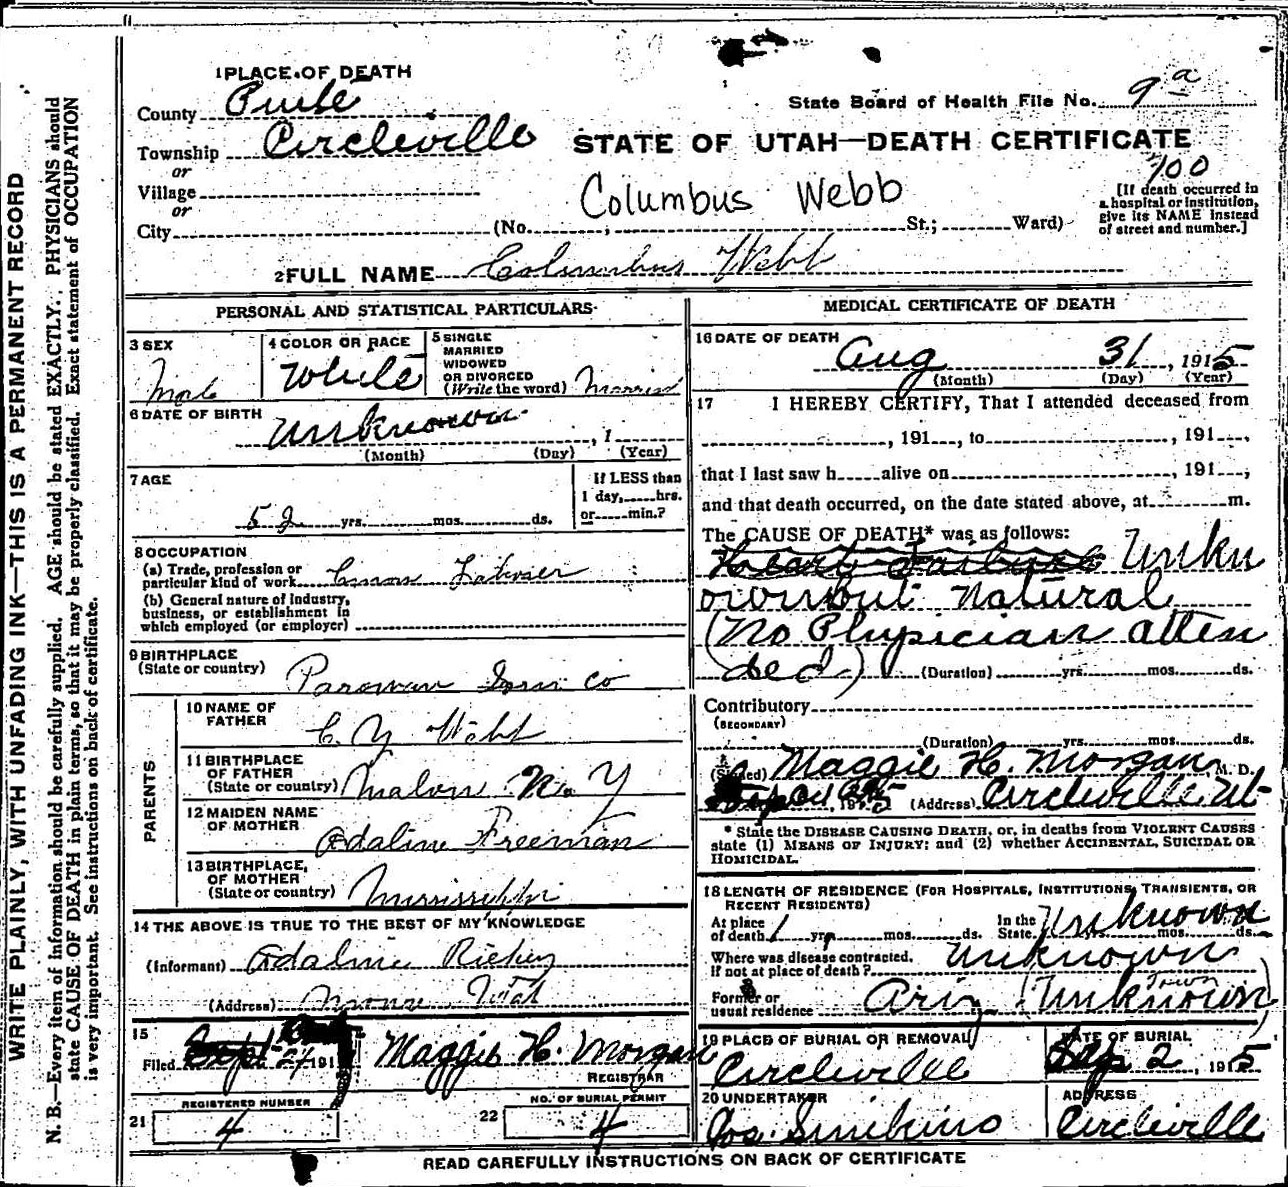 1 PLACE OF DEATH
County Piute
State Board of Health File No. 9 a
Township Circleville
STATE OF UTAH—DEATH CERTIFICATE
or
Village
700
or
Columbus Webb
[If death occurred in
a hospital or institution,
give its NAME instead
of street and number.]
City (No. ; St.; Ward)
2 FULL NAME Columbus Webb
PERSONAL AND STATISTICAL PARTICULARS
3 SEX
Male
4 COLOR OR RACE
White
5 SINGLE
MARRIED
WIDOWED
OR DIVORCED
(Write the word) Married
6 DATE OF BIRTH
Unknown , 1
(Month) (Day) (Year)
7 AGE
52 yrs. mos. ds.
If LESS than
1 day, hrs.
or min.?
8 OCCUPATION
(a) Trade, profession or
particular kind of work Laborer
(b) General nature of industry,
business, or establishment in
which employed (or employer)
9 BIRTHPLACE
(State or country) Parowan Iron Co
PARENTS
10 NAME OF
FATHER C. Y. Webb
11 BIRTHPLACE
OF FATHER
(State or country) Malone N. Y
12 MAIDEN NAME
OF MOTHER Adaline Freeman
13 BIRTHPLACE,
OF MOTHER
(State or country) Mississippi
14 THE ABOVE IS TRUE TO THE BEST OF MY KNOWLEDGE
(Informant) Adaline Richey
(Address) Utah
15
Filed 191 Maggie H. Morgan
REGISTRAR
REGISTERED NUMBER
21 4
NO. OF BURIAL PERMIT
22 4
MEDICAL CERTIFICATE OF DEATH
16 DATE OF DEATH
Aug 31, 1915
(Month) (Day) (Year)
17 I HEREBY CERTIFY, That I attended deceased from
, 191 , to , 191 ,
that I last saw h alive on , 191 ;
and that death occurred, on the date stated above, at m.
The CAUSE OF DEATH* was as follows:
Heart Failure Unkn
own but Natural
(No Physician atten
ded) (Duration) yrs. mos. ds.
Contributory
(SECONDARY)
(Duration) yrs. mos. ds.
(Signed) Maggie H. Morgan, M. D.
, 1915 (Address) Circleville Ut
* State the DISEASE CAUSING DEATH, or, in deaths from VIOLENT CAUSES
state (1) MEANS OF INJURY; and (2) whether ACCIDENTAL, SUICIDAL OR
HOMICIDAL.
18 LENGTH OF RESIDENCE (FOR HOSPITALS, INSTITUTIONS, TRANSIENTS, OR
RECENT RESIDENTS)
At place
of death 1 yrs. mos. ds.
In the
State Unknown yrs. mos. ds.
Where was disease contracted,
if not at place of death? Unknown
Former or
usual residence Ariz (Town Unknown)
19 PLACE OF BURIAL OR REMOVAL
Circleville
DATE OF BURIAL
Sep 2, 1915
20 UNDERTAKER
Jos. Simkins
ADDRESS
Circleville
READ CAREFULLY INSTRUCTIONS ON BACK OF CERTIFICATE
WRITE PLAINLY, WITH UNFADING INK—THIS IS A PERMANENT RECORD
N. B.—Every item of information should be carefully supplied. AGE should be stated EXACTLY. PHYSICIANS should
state CAUSE OF DEATH in plain terms, so that it may be properly classified. Exact statement of OCCUPATION
is very important. See instructions on back of certificate.